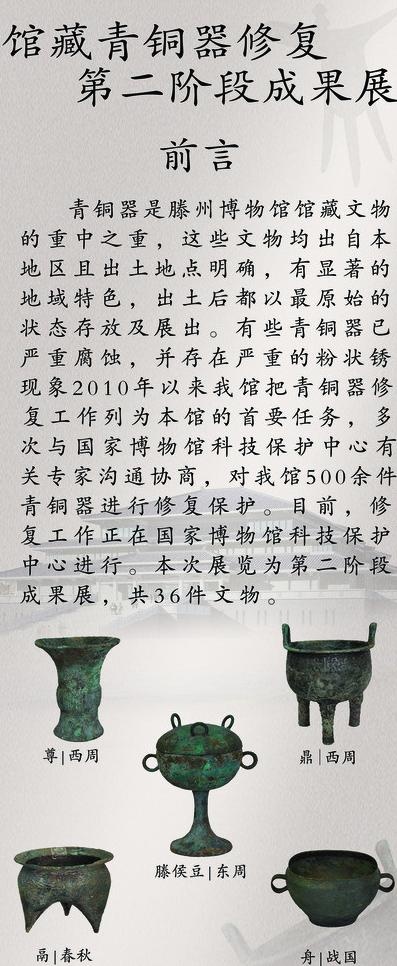 馆藏青铜器修复
第二阶段成果展
前言
青铜器是滕州博物馆馆藏文物
的重中之重，这些文物均出自本
地区且出土地点明确，有显著的
地域特色，出土后都以最原始的
状态存放及展出。有些青铜器已
严重腐蚀，并存在严重的粉状锈
现象2010年以来我馆把青铜器修
复工作列为本馆的首要任务，多
次与国家博物馆科技保护中心有
关专家沟通协商，对我馆500余件
青铜器进行修复保护。目前，修
复工作正在国家博物馆科技保护
中心进行。本次展览为第二阶段
成果展，共36件文物。
尊|西周
鼎|西周
滕侯豆|东周
鬲|春秋
舟|战国